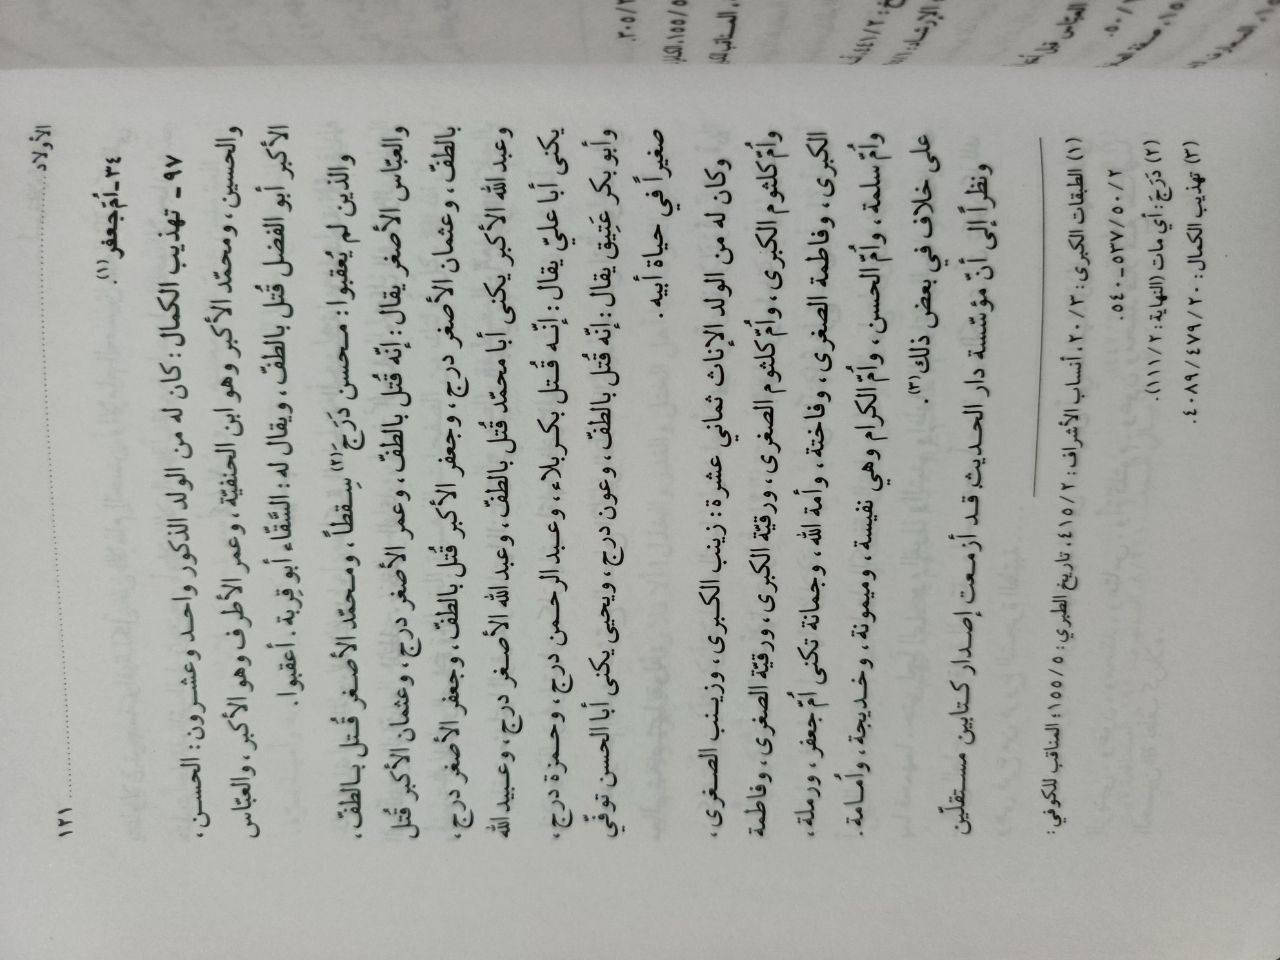 الأولاد ........................................................ ١٢١
٣٤ ـ أُمّ جعفر (١).
٩٧ ـ تهذيب الكمال : كان له من الولد الذكور واحد وعشرون : الحسن ،
والحسين ، ومحمّد الأكبر وهو ابن الحنفيّة ، وعمر الأطرف وهو الأكبر ، والعبّاس
الأكبر أبو الفضل قُتل بالطفّ ، ويقال له : السَّقّاء أبو قِربة . أعقبوا .
والذين لم يُعقبوا : محسن دَرَجَ (٢) سِقطاً ، ومحمّد الأصغر قُتل بالطفّ ،
والعبّاس الأصغر يقال : إنّه قُتل بالطفّ ، وعمر الأصغر درج ، وعثمان الأكبر قُتل
بالطفّ ، وعثمان الأصغر درج ، وجعفر الأكبر قُتل بالطفّ ، وجعفر الأصغر درج ،
وعبد الله الأكبر يكنى أبا محمّد قُتل بالطفّ ، وعبد الله الأصغر درج ، وعبيد الله
يكنى أبا عليّ يقال : إنّه قُتل بكربلاء ، وعبد الرحمن درج ، وحمزة درج ،
وأبو بكر عَتِيق يقال : إنّه قُتل بالطفّ ، وعون درج ، ويحيى يكنى أبا الحسن توفّي
صغيراً في حياة أبيه .
وكان له من الولد الإناث ثماني عشرة : زينب الكبرى ، وزينب الصغرى ،
وأُمّ كلثوم الكبرى ، وأُمّ كلثوم الصغرى ، ورقيّة الكبرى ، ورقيّة الصغرى ، وفاطمة
الكبرى ، وفاطمة الصغرى ، وفاختة ، وأمة الله ، وجمانة تكنى أُمّ جعفر ، ورملة ،
وأُمّ سلمة ، وأُمّ الحسن ، وأُمّ الكرام وهي نفيسة ، وميمونة ، وخديجة ، وأُمامة .
على خلاف في بعض ذلك (٣).
ونظراً إلى أنّ مؤسّسة دار الحديث قد أزمعت إصدار كتابين مستقلّين
(١) الطبقات الكبرى : ٣ / ٢٠ ، أنساب الأشراف : ٢ / ٤١٥ ، تاريخ الطبري : ٥ / ١٥٥ ؛ المناقب للكوفي :
٢ / ٥٠ / ٥٣٧ ـ ٥٤٠ .
(٢) دَرَجَ : أي مات (النهاية : ٢ / ١١١).
(٣) تهذيب الكمال : ٢٠ / ٤٧٩ / ٤٠٨٩ .